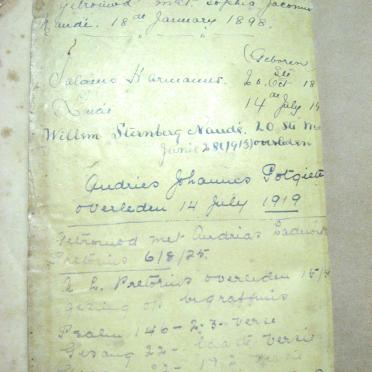 getrouwd met Sophia Jacomina
Naudé. 18de January 1898.
(Geboren
Salomo Hermanus. 26ste Oct 18
Lucie 14de July 19
Willem Sternberg Naudé. 20 Ste
Junie 28(1915) overleden
Andries Johannes Potgiete
overleden 14 July 1919
getrouwd met Andrias
Pretorius 6/8/25.
A L. Pretorius overleden 15/
gesing op begraffnis
Psalm 140 - 2-3- verse
Gesang 22 - laaste versie